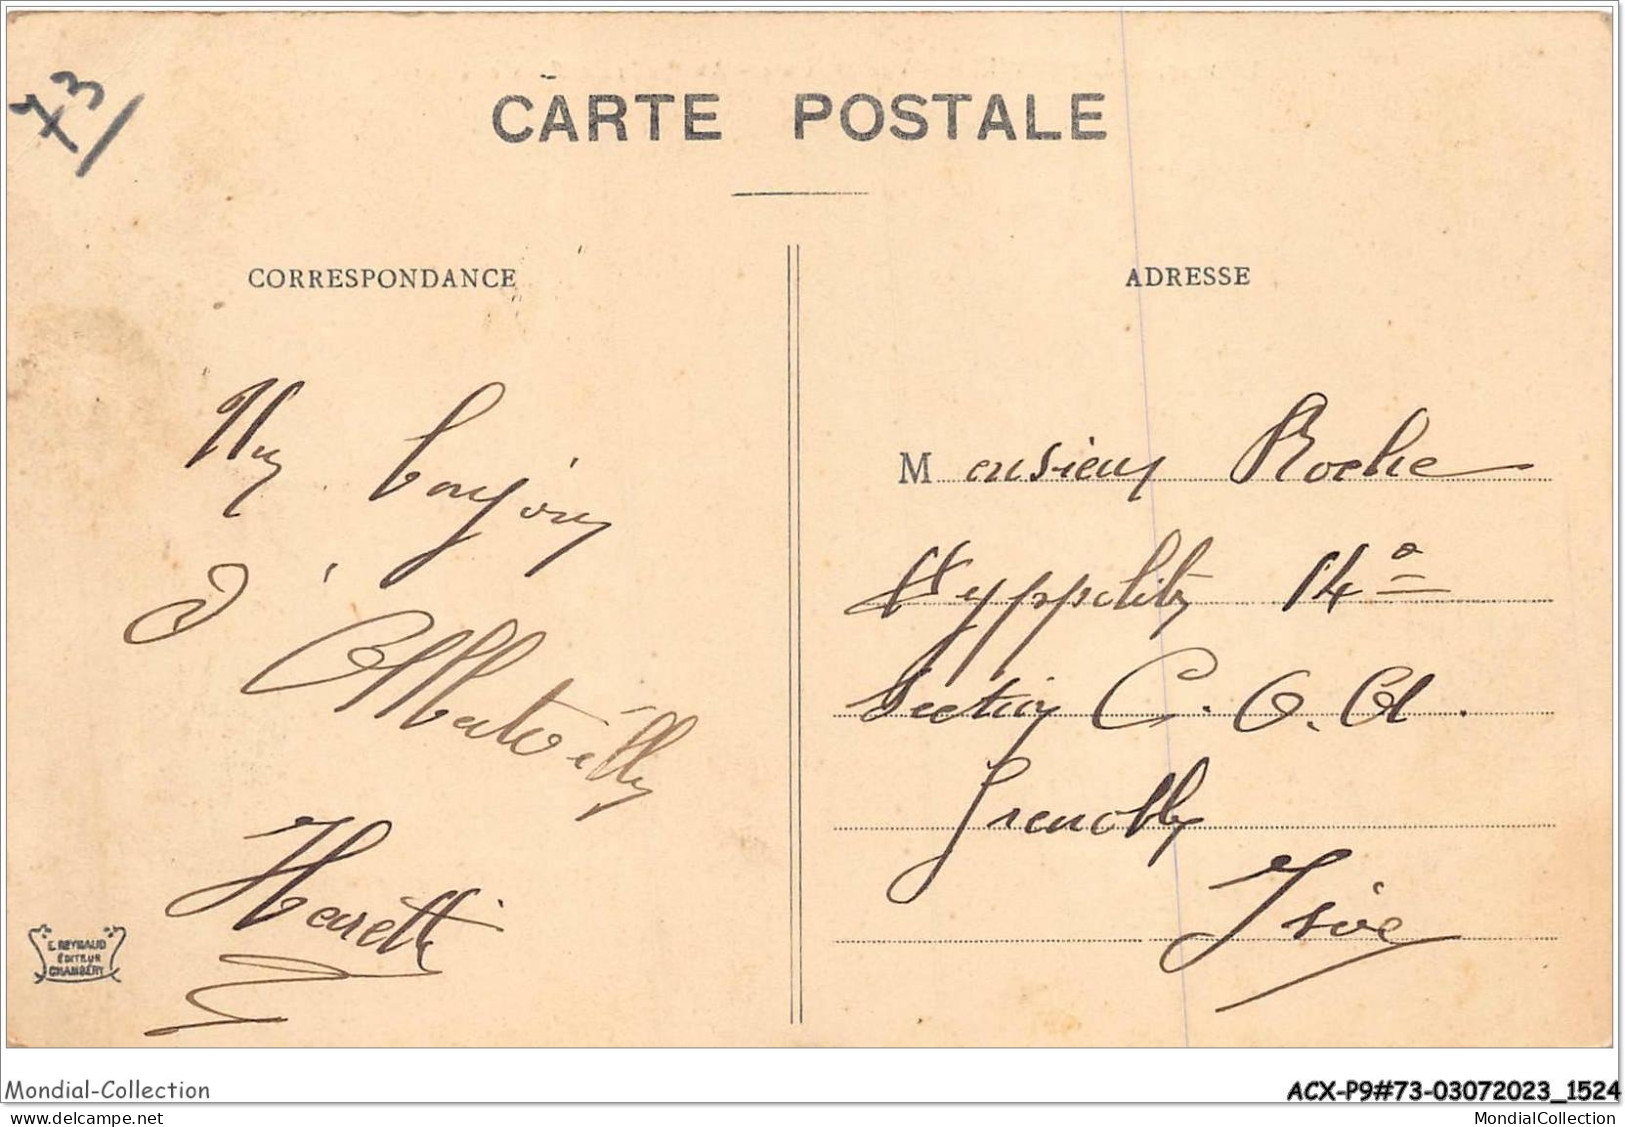 73
CARTE POSTALE
CORRESPONDANCE
Un bonjour
d'Albertville
Henriette
E. REYNAUD
ÉDITEUR
CHAMBÉRY
ADRESSE
Monsieur Roche
Hyppolite 14e
Section C. O. A.
Grenoble
Isère
Mondial-Collection
ACX-P9#73-03072023_1524
delcampe.net
MondialCollection